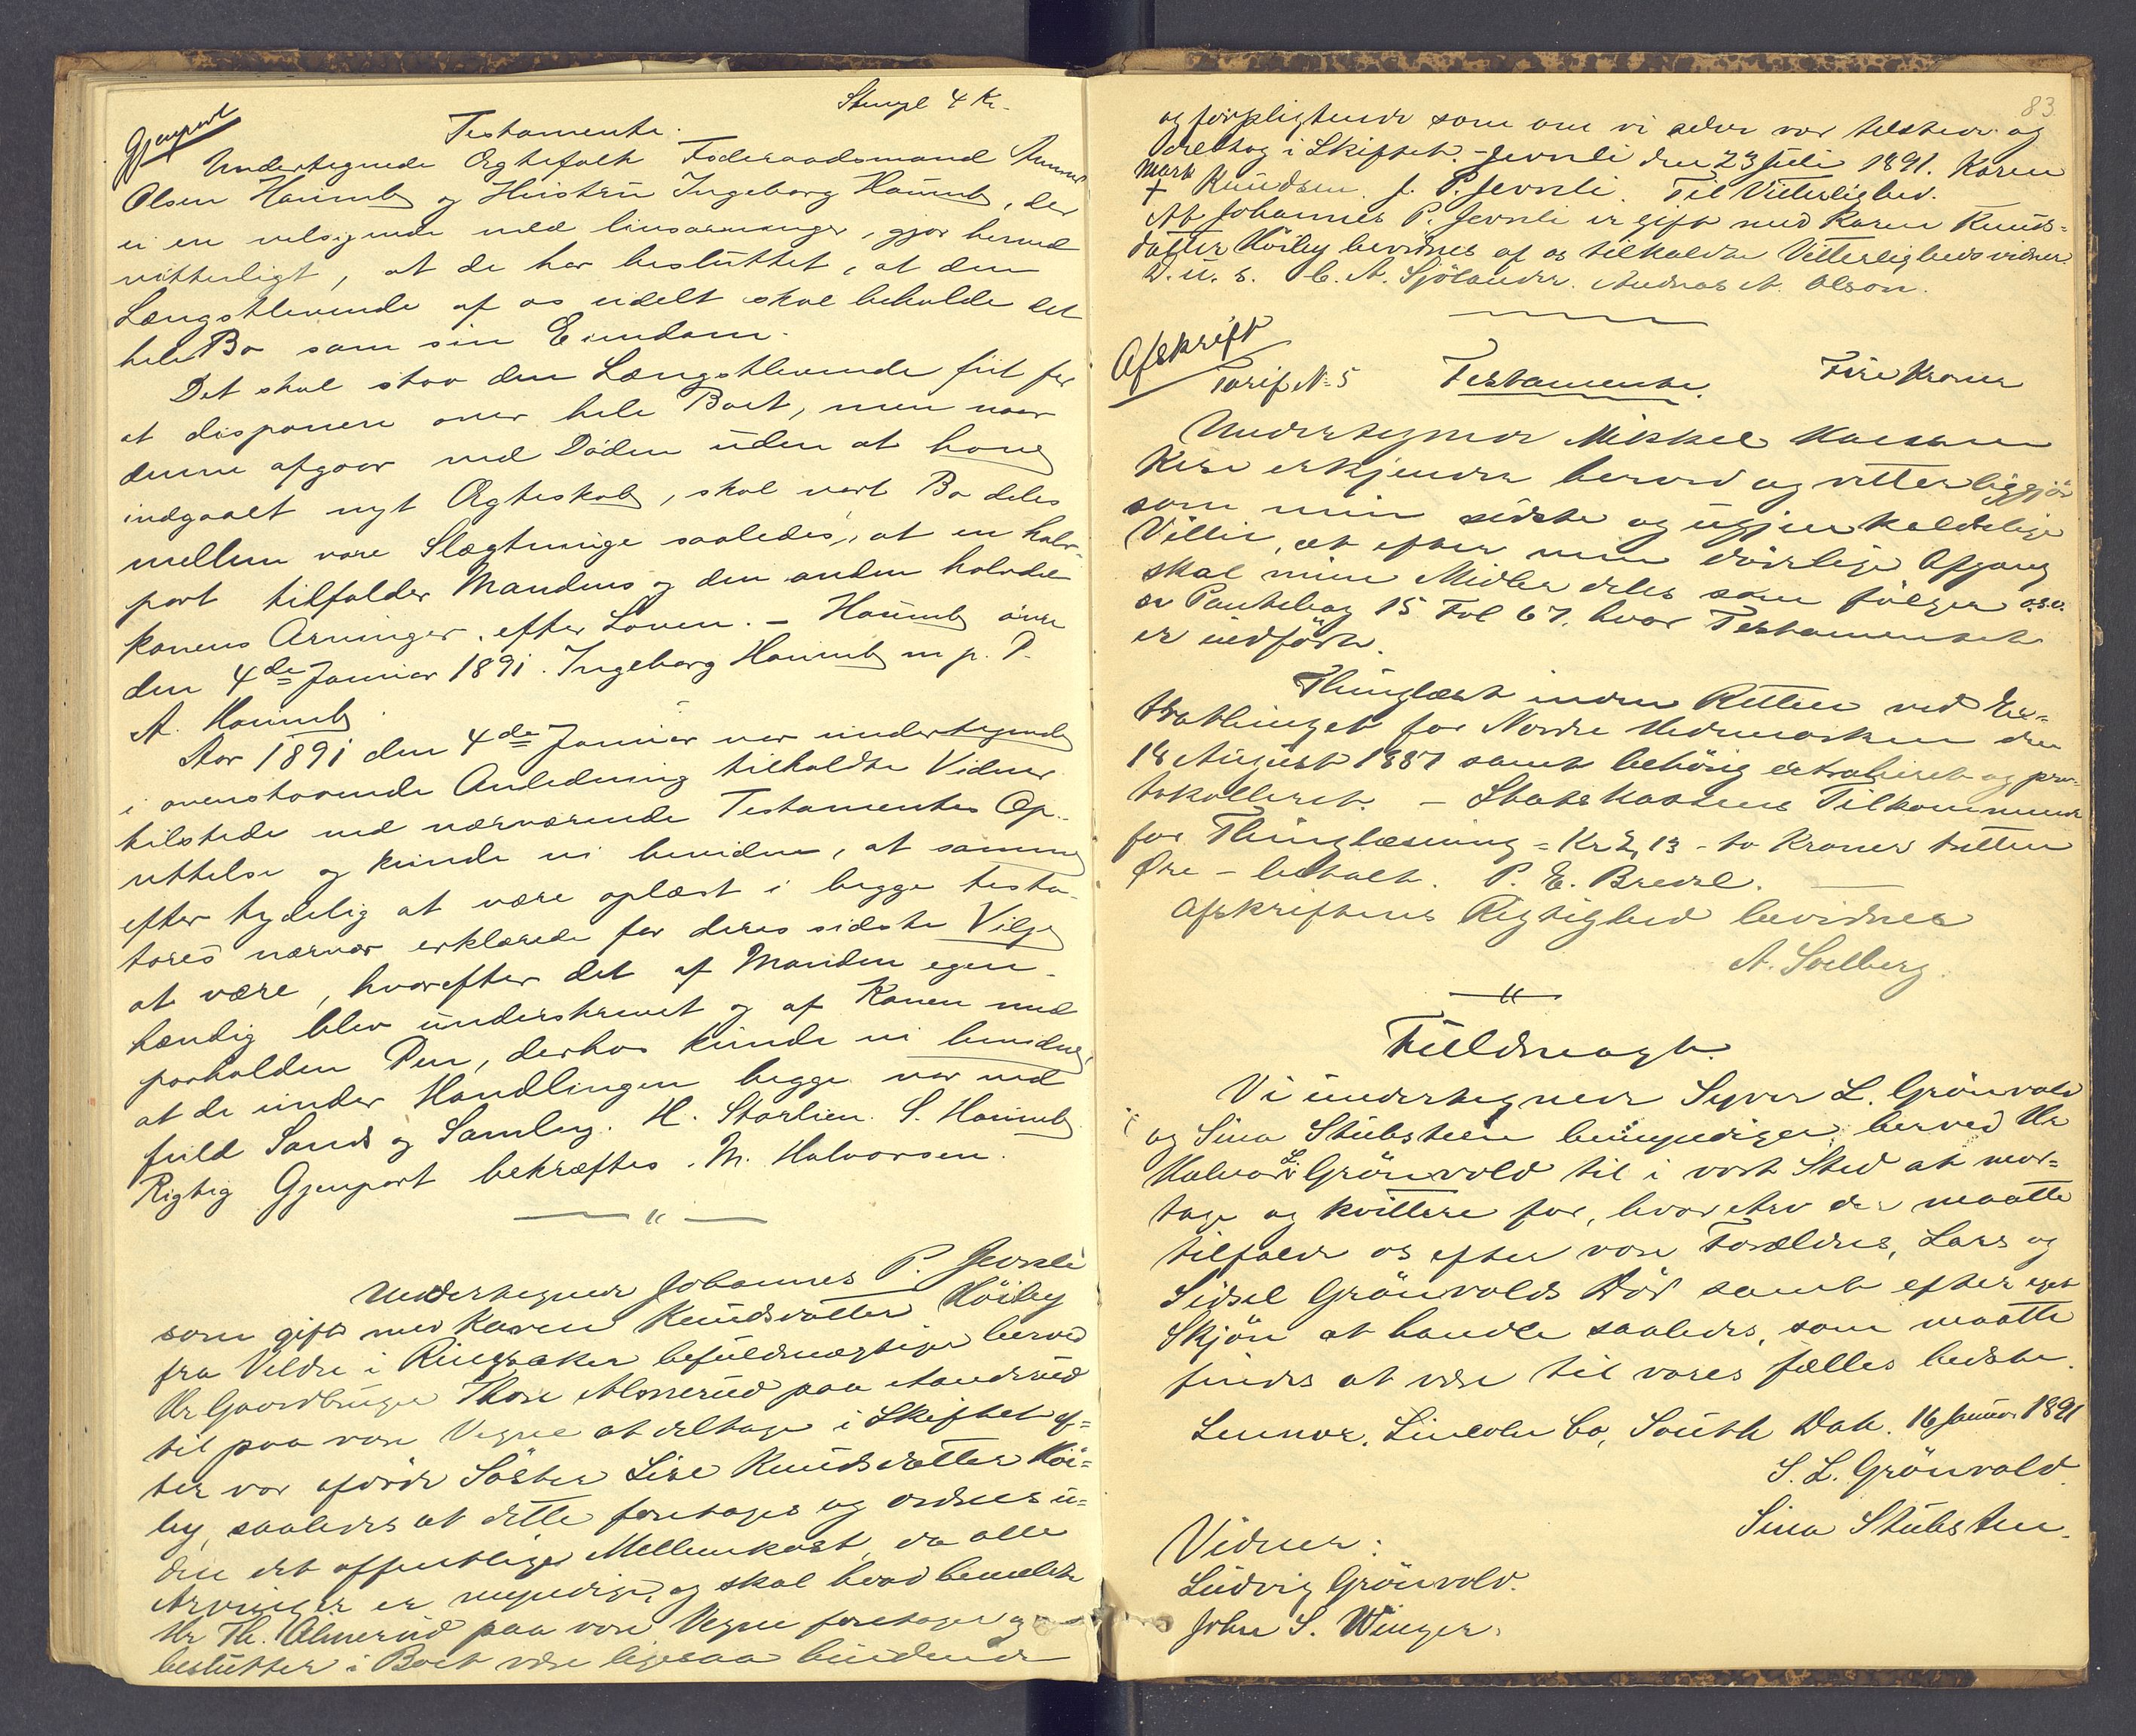 Stempl 4 Kr.
Gjenpart
Testamente.
Undertegnede Ægtefolk Föderaadsmand Gunnar
Olsen Haümb og Hüstrü Ingeborg Haümb, der
ei er velsignede med livsarvinger, gjør herved
vitterligt, at de har beslüttet, at den
Længstlevende af os üdelt skal beholde det
hele Bo som sin Eiendom.
Det skal staa den Længstlevende frit for
at disponere over hele Boet, men naar
denne afgaar ved Døden üden at have
indgaaet nyt Ægteskab, skal vort Bo deles
mellem vore Slægtninge saaledes, at en halv-
part tilfalder Mandens og den anden halvdel
konens Arvinger, efter Loven. – Haümb övre
den 4de Januar 1891. Ingeborg Haümb m. p. P.
A. Haümb
Aar 1891 den 4de Januar var undertegnede
i ovenstaaende Anledning tilkaldte Vidner
tilstede ved nærværende Testamentes Op-
rettelse og kunde vi bevidne, at samme
efter tydelig at være oplæst i begge testa-
tores nærvær erklærede for deres sidste Vilje
at være, hvorefter det af Manden egen-
hændig blev ünderskrevet og af Konen med
paaholden Pen, derhos künde vi bevidne,
at de ünder Handlingen begge var ved
füld Sands og Samling. H. Storlien. S. Haümb
Rigtig Gjenpart bekræftes. M. Halvorsen.
Undertegnede Johannes P. Jevnli
som gift med Karen Knüdsdatter Höiby
fra Veldre i Ringsaker befüldmægtiger herved
Hr Gaardbrüger Thore Almerüd paa Aanderüd
til paa vore Vegne at deltage i Skiftet ef=
ter vor afdöde Söster Lise Knüdsdatter Höi=
by, saaledes at dette foretages og ordnes ü=
den det offentliges Mellemkost, da alle
Arvinger er myndige, og skal hvad bemeldte
Hr Th. Almerüd paa vore Vegne foretager og
beslütter i Boet være ligesaa bindende
83
og forpligtende som om vi selv var tilstede og
deltog i Skiftet. – Jevnli den 23 Juli 1891. Karen
mærk
+ Knüdsen J. P. Jevnli. Til Vitterlighed.
At Johannes P. Jevnli er gift med Karen Knüds=
datter Höiby bevidnes af os tilkaldte Vitterlighedsvidner.
D. ü. s. C. A. Sjölander. Andreas A. Olson.
Afskrift
Tarif No 5 Testamente. Fire Kroner
Undertegnede Mikkel Hansen
Kise erkjender herved og vitterliggjör
som min sidste og ügjenkaldelige
Villie, at efter min dödelige Afgang
skal mine Midler deles som fölger o.s.v.
se Pantebog 15 Fol 67, hvor Testamentet
er indfört.
Thinglæst inden Retten ved Ex=
trathinget for Nordre Hedemarken den
18 Aügüst 1887 samt behörig extraheret og pro=
tokolleret. – Statskassens Tilkommende
for Thinglæsning = Kr 2,13 – to Kroner tretten
Øre – betalt. P. E. Bredal.
Afskriftens Rigtighed bevidnes
A. Solberg.
Füldmagt.
Vi ündertegnede Syver L. Grönvold
og Sina Stübsteen bemyndiger herved Hr
Halvor L. Grönvold til i vort Sted at mod=
tage og kvittere for, hvad Arv der maatte
tilfalde os efter vore Forældres, Lars og
Sidsel Grönvolds Död samt efter eget
Skjön at handle saaledes, som maatte
findes at være til vores fælles bedste.
Lennox, Lincoln Co, South Dak. 16 Januar 1891
S. L. Grönvold
Sina Stübsten.
Vidner:
Lüdvig Grönvold.
John S. Winger.